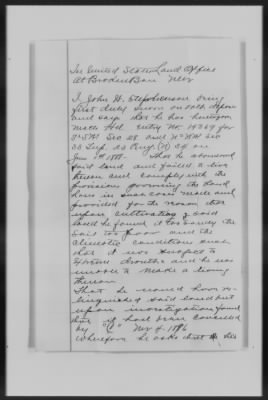 In United States Land Office
At Broken Bow Nebr
I John H. Stephenson being
first duly sworn on oath depose
and says that he has heretofore
made Hd. Entry No. 14369 for
Sec 28 and Sec
33 Twp. 23 Rng. 24 on
June 1888. That he abandoned
said land and failed
thereon and comply with the
provisions governing the land
laws in such cases made and
provided for the reason that
upon cultivation of said
land he found it too sandy the
soil too poor and the
climatic conditions such
that it was subject to
extreme drouths and he was
unable to make a living
thereon
That he
relinquished said land but
upon investigation found
that it had been cancelled
by "C" Nov 4. 1896
Wherefore he asks that this